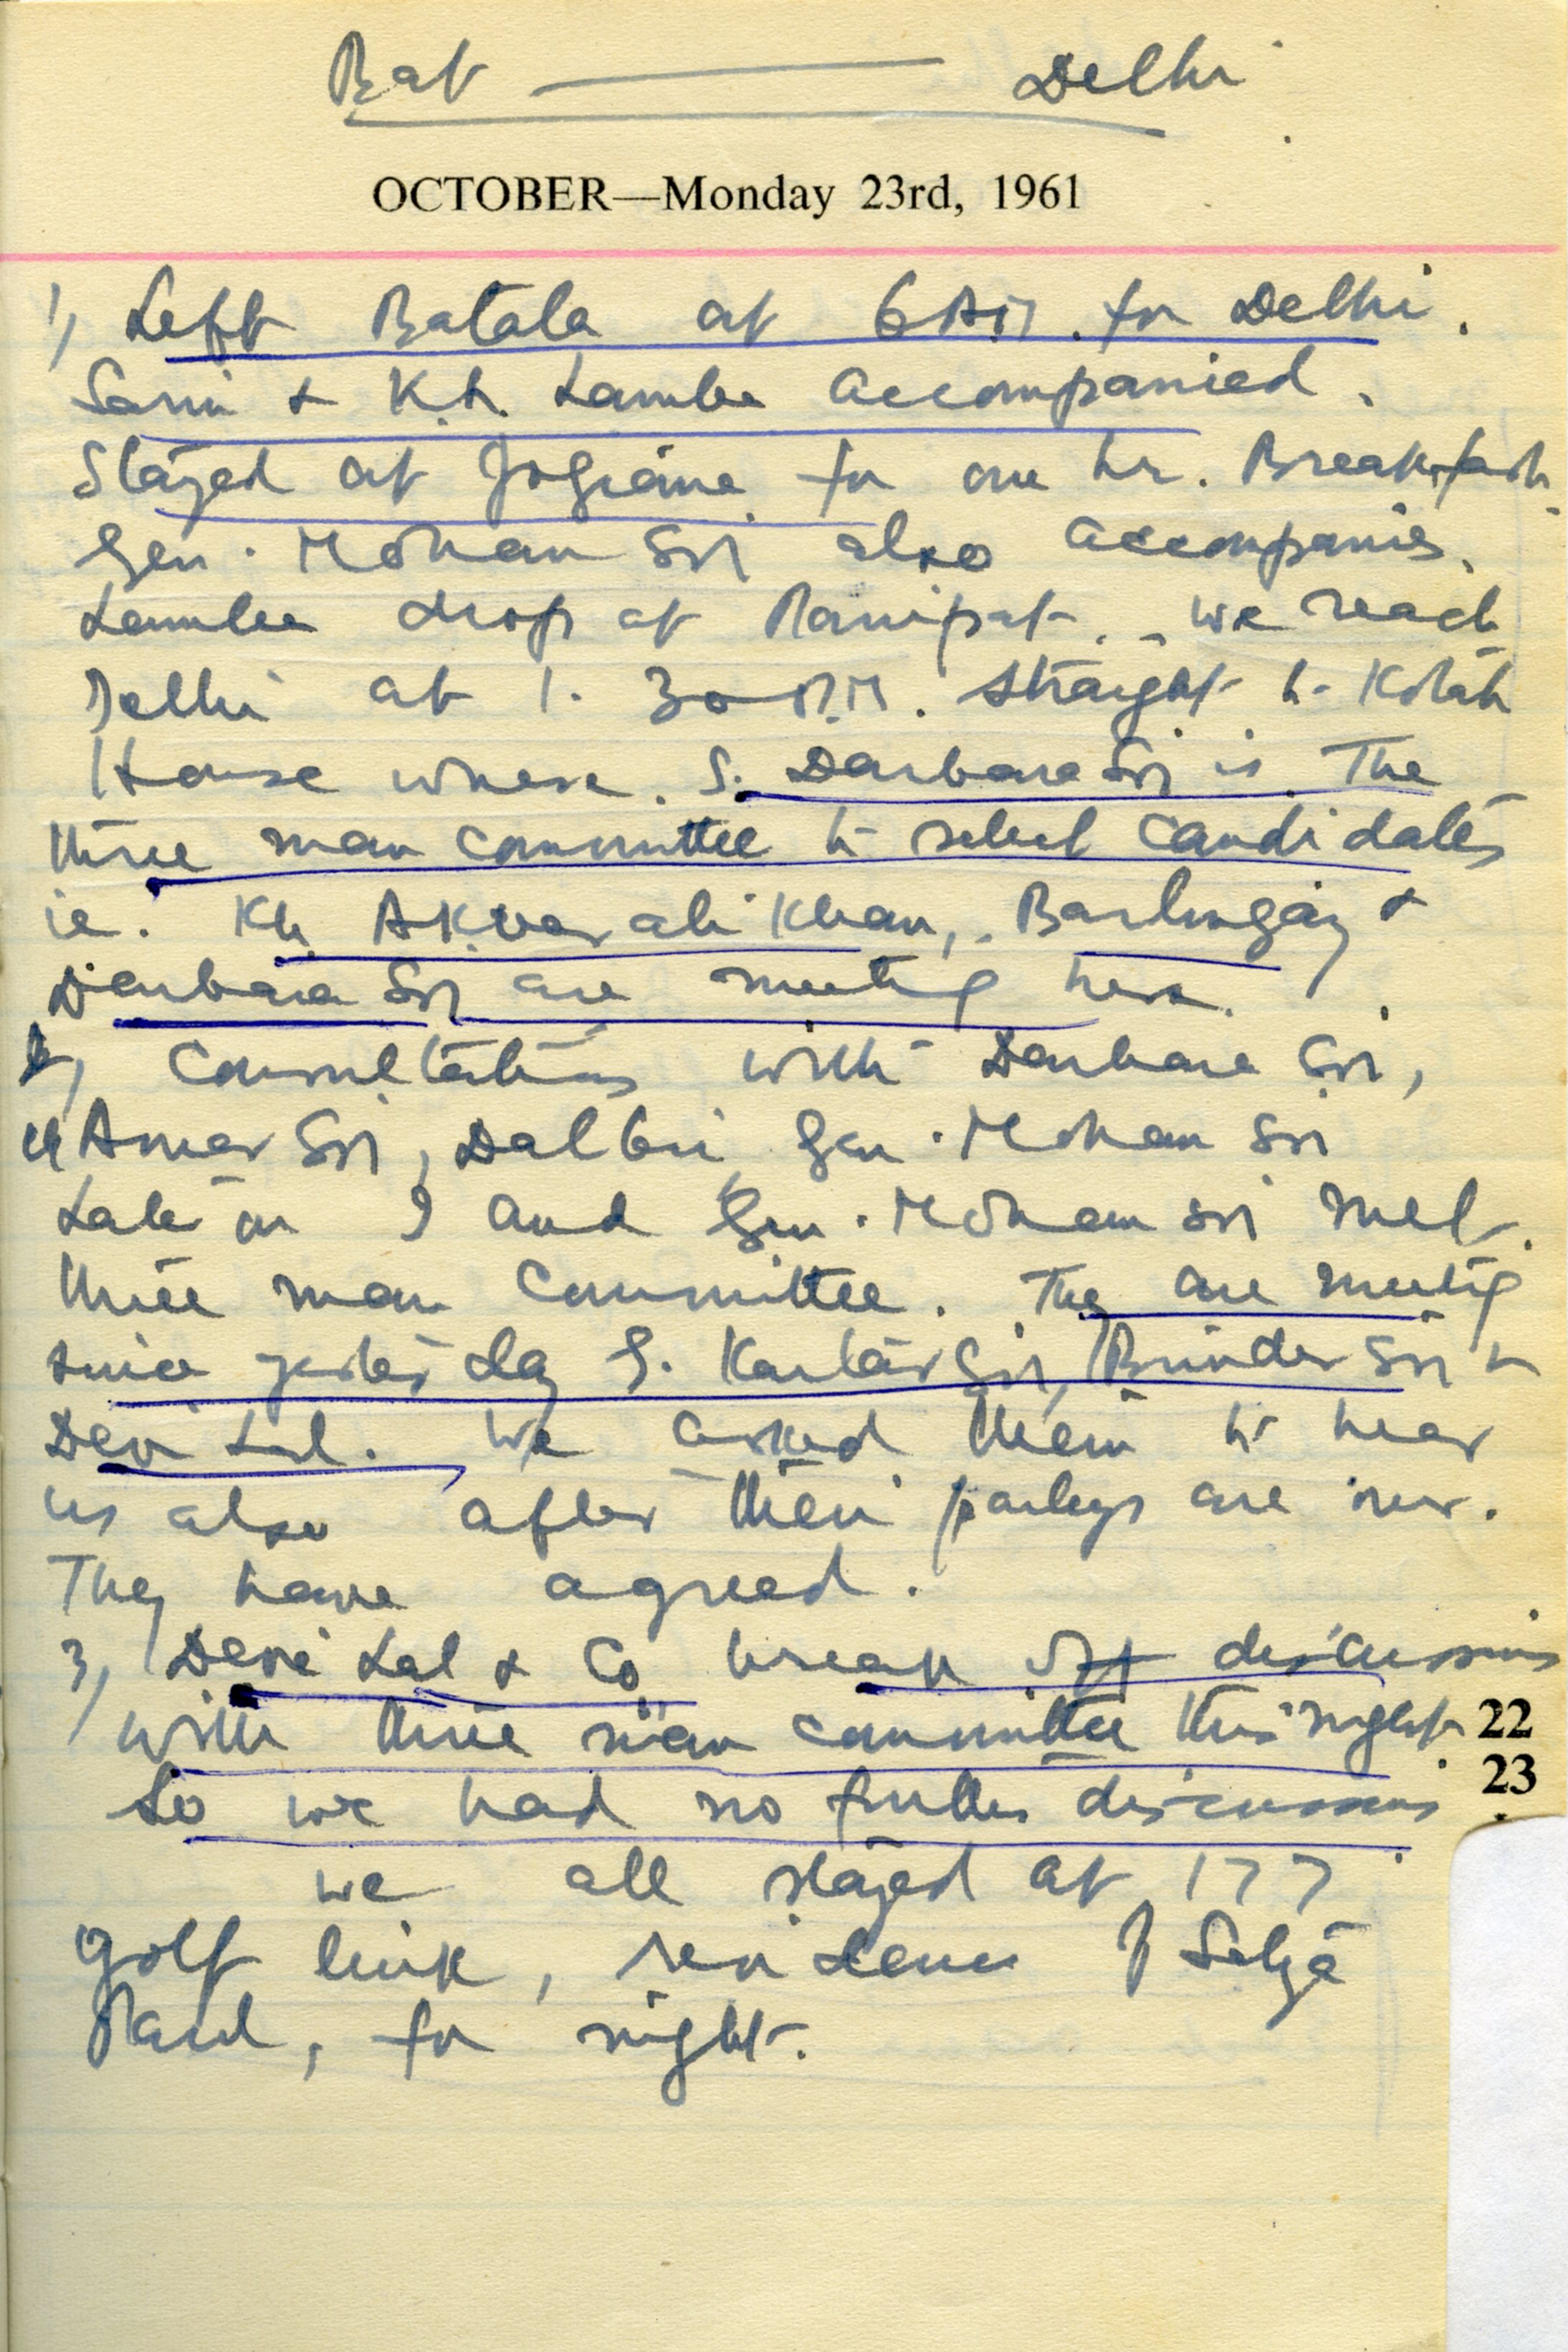 Bat — Delhi
OCTOBER—Monday 23rd, 1961
1) Left Batala at 6 AM. for Delhi.
Saini & K.L. Lamba accompanied.
Stayed at Jogiana for one hr. Breakfast.
Gen. Mohan Sn also accompanies.
Lamba drop at Panipat. We reach
Delhi at 1.30 P.M. straight to Kotah
House where S. Darbara Sn is. The
three man committee to select candidates
ie. Kh. Akbar ali Khan, Barlingay &
Darbara Sn are meeting here.
2) Consultations with Darbara Sn,
Amar Sn, Dalbir, Gen. Mohan Sn
Later on I and Gen. Mohan Sn met
three man Committee. They are meeting
since yesterday S. Kartar Sn, Brinder Sn &
Devi Lal. We asked them to hear
us also after their parleys are over.
They have agreed.
3) Devi Lal & Co break off discussions
with three man committee this night 22
23
So we had no further discussions
we all stayed at 177
Golf link, residence of Satya
Paul, for night.